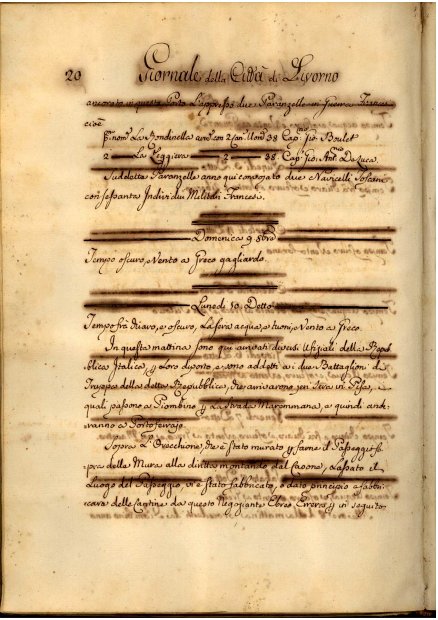 20 Giornale della Città di Livorno
ancorato in questo Porto l'appresso due Paranzelle in Guerra Francesi
cioè
p.º nom.ª La Rondinella arm. con 2 Can. Uom. 38 Cap.º Gio. Boulet
2 La Leggiera 2 38 Cap.º Gio. Ant.º De Luca
Sudetta Paranzelle anno qui convojato due Navicelli Toscani
con sessanta Individui Militari Francesi.
Domenica 9 8bre
Tempo oscuro, e Vento a Greco gagliardo.
Lunedi 10. Detto
Tempo frà chiaro, e oscuro, la sera acqua, e tuoni, Vento a Greco.
In questa mattina sono qui arrivati diversi Ufiziali della Repub
blica Italica, p Loro diporto, e sono addetti a i due Battaglioni di
Truppa della detta Repubblica, che arrivarono jeri sera in Pisa, e
quali passono a Piombino p la strada Maremmana, e quindi andr
ranno a Portoferrajo.
Sopra L'Orecchione, che è stato murato p farne il Passeggio so
pra della Mura alla diritta montando dal Casone, lassato il
Luogo del Passeggio, vi è stato fabbricato, o dato principio a fabbri
care delle Cantine da questo Negoziante Ebreo Errera, p in seguito